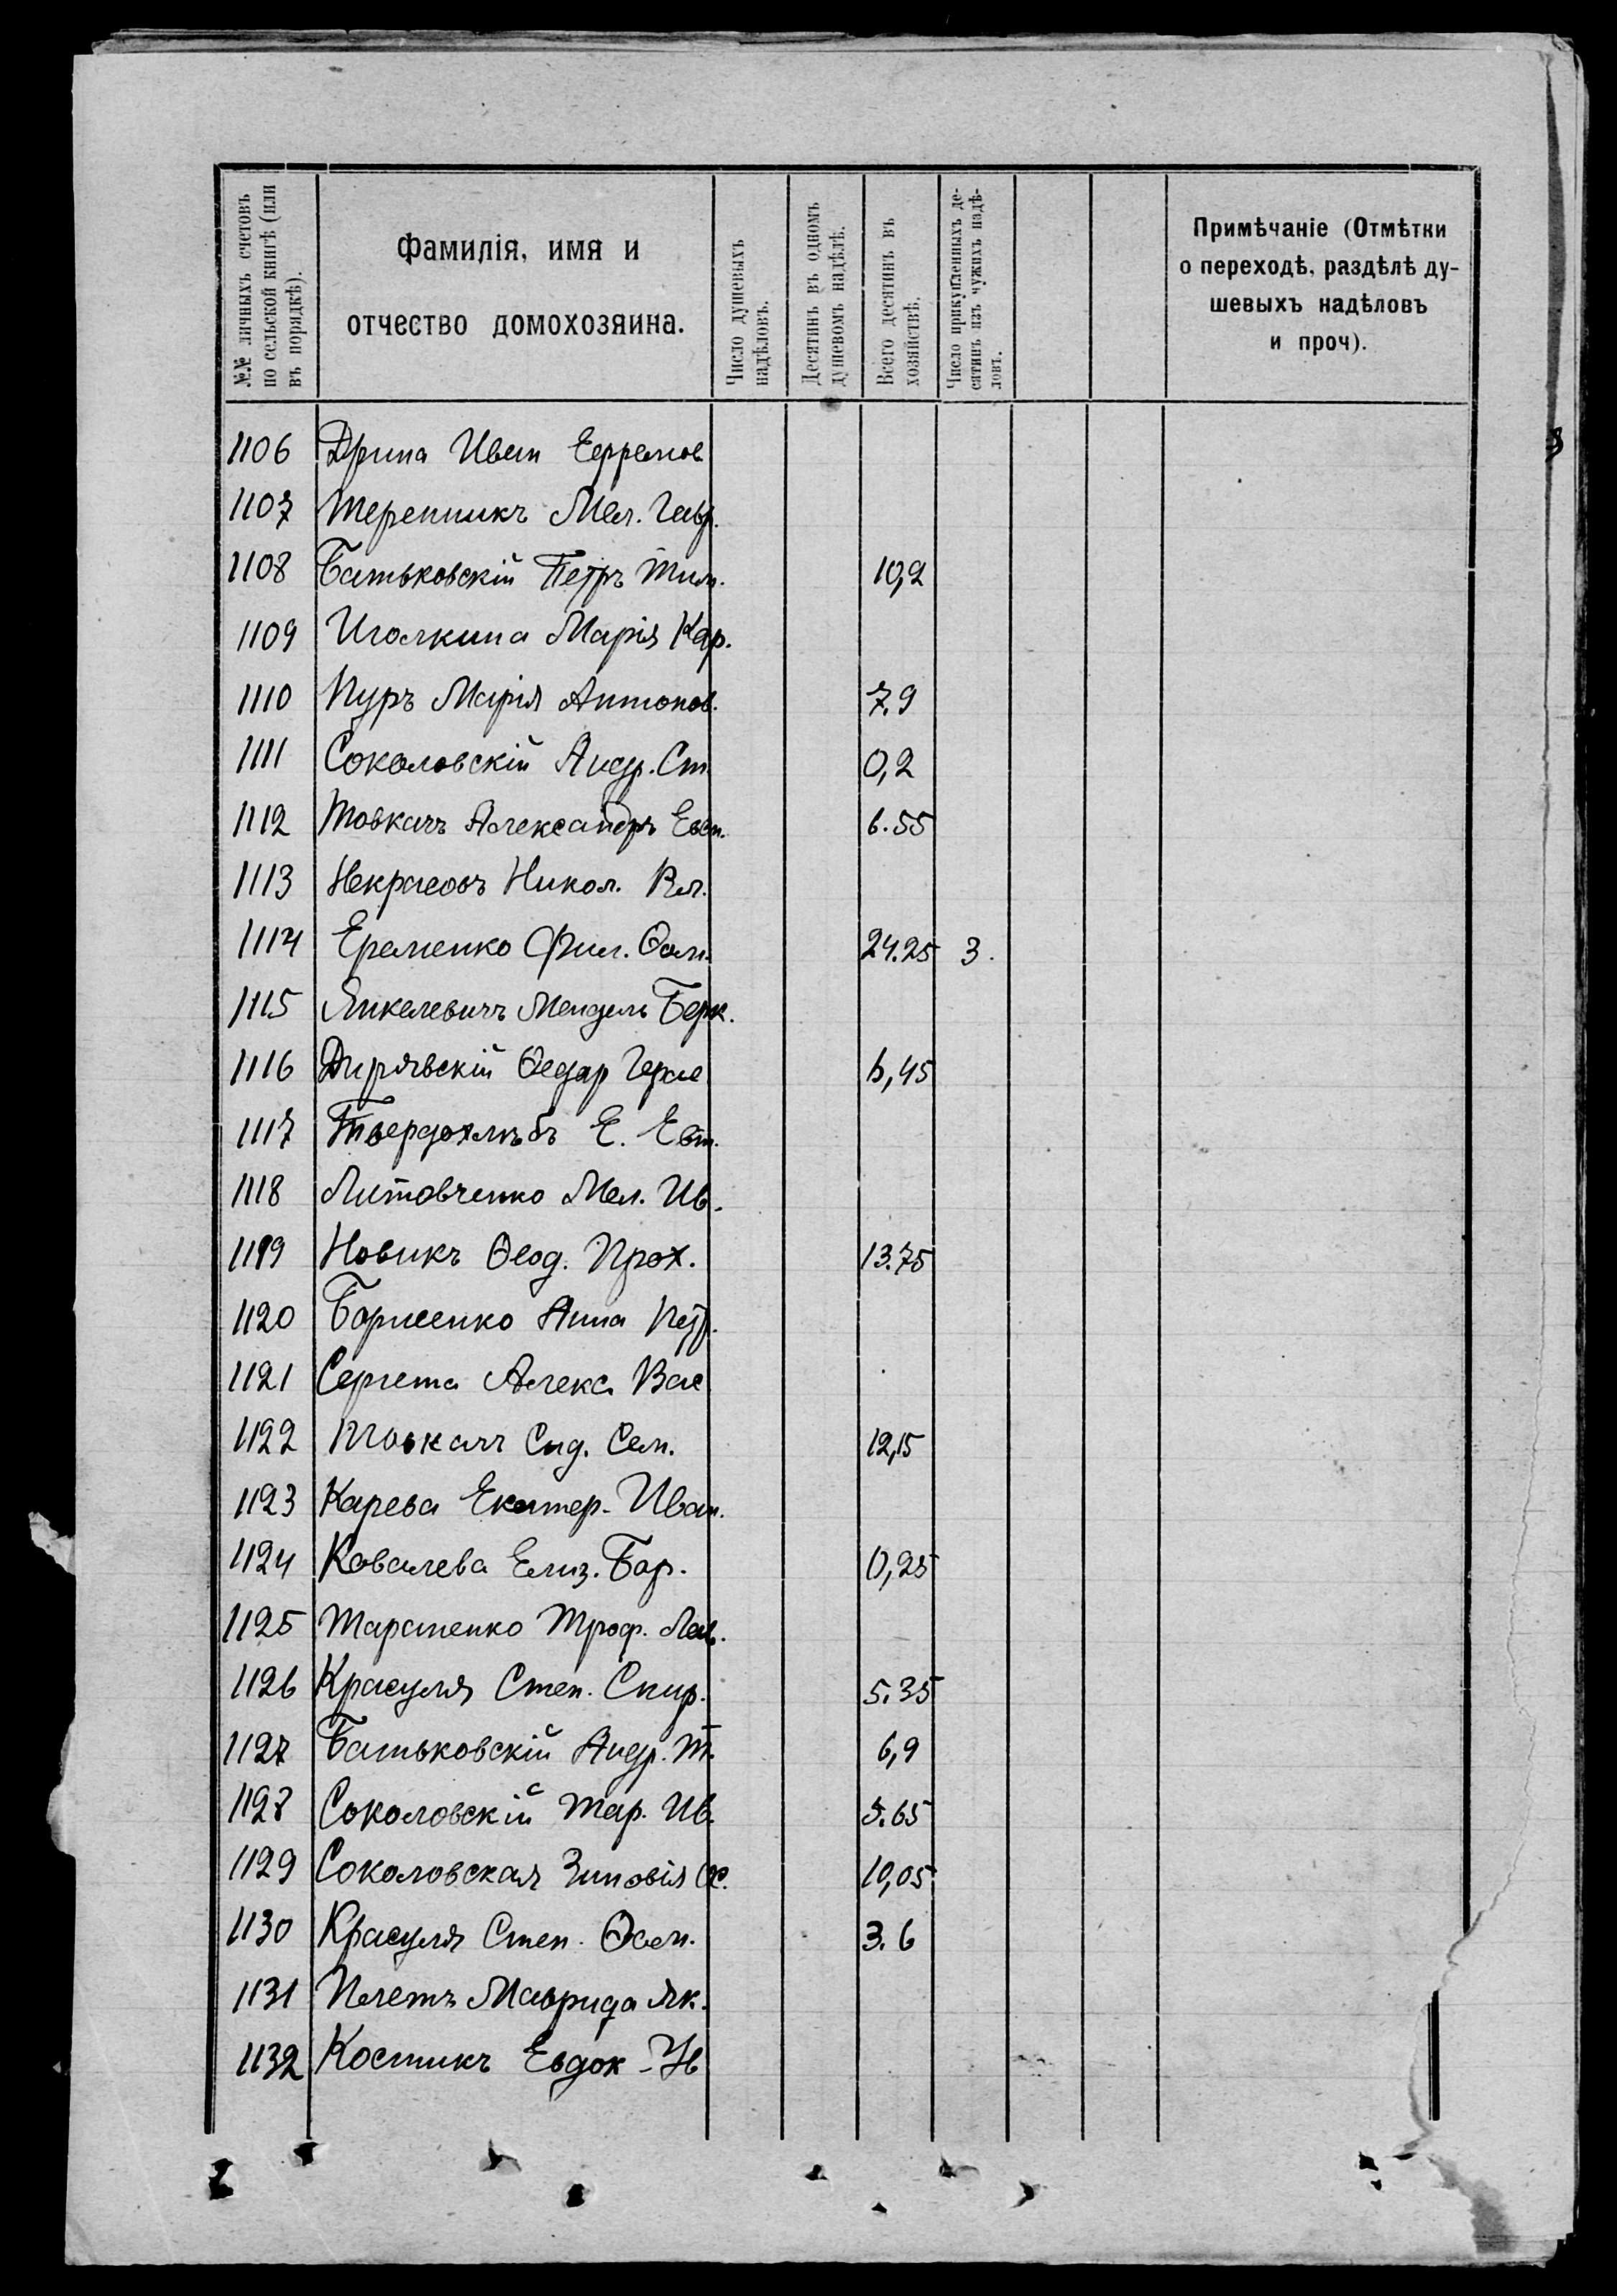 №№ личныхъ счетовъ по сельской книгѣ (или въ порядкѣ).
Фамилія, имя и отчество домохозяина.
Число душевыхъ надѣловъ.
Десятинъ въ одномъ душевомъ надѣлѣ.
Всего десятинъ въ хозяйствѣ.
Число прикупленныхъ десятинъ изъ чужихъ надѣловъ.
Примѣчаніе (Отмѣтки
о переходѣ, раздѣлѣ ду-
шевыхъ надѣловъ
и проч).
1106 Ефремов
1107 Мел. Гавр.
1108 Батьковскій Петръ Тим. 10,2
1109 Иголкина Марія Кар.
1110 Пуръ Марія Антонов. 7.9
1111 Соколовскій Андр. Ст. 0,2
1112 Товкачъ Александръ Евст. 6.55
1113 Некрасовъ Никол. Вл.
1114 Еременко Фил. 24.25 3.
1115 Янкелевичъ Мендель Берк.
1116 Ѳедор 6,45
1117 Твердохлѣбъ Е. Евт.
1118 Литовченко Мел. Ив.
1119 Новикъ Ѳеод. Прох. 13.75
1120 Борисенко Анна Петр.
1121 Сергета Алекс. Вас
1122 Товкачъ Сид. Сем. 12,15
1123 Карева Екатер. Иван.
1124 Ковалева Елиз. Бор. 0,25
1125 Тараненко Троф.
1126 Красуля Степ. Спир. 5.35
1127 Батьковскій Андр. Т. 6,9
1128 Соколовскій Тар. Ив. 5.65
1129 Соколовская Зиновія 10,05
1130 Красуля Степ. 3.6
1131 Маврида Як.
1132 Костикъ Евдок